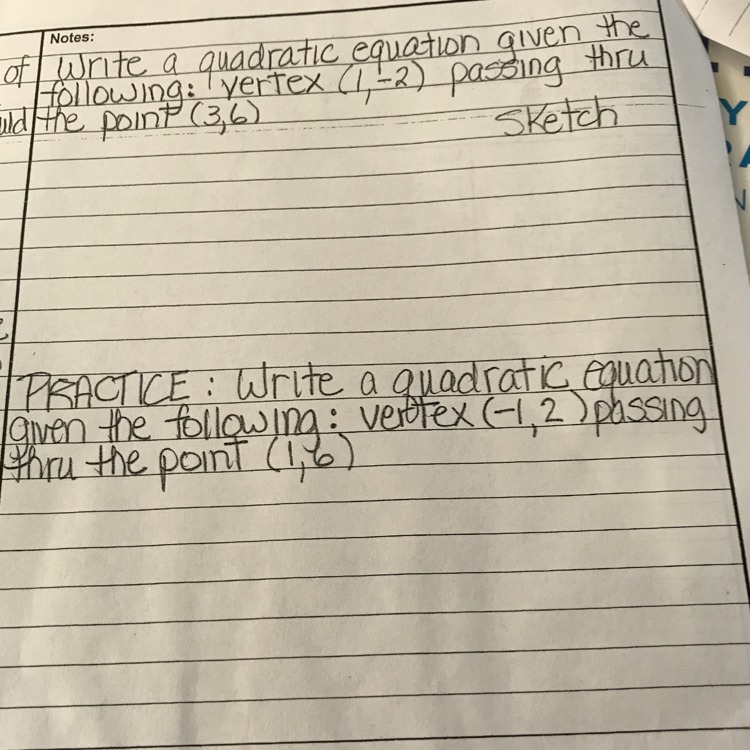 Notes:
of Write a quadratic equation given the
following: vertex (1,-2) passing thru
the point (3,6)
Sketch
PRACTICE: Write a quadratic equation
given the following: vertex (-1,2) passing
thru the point (1,6)